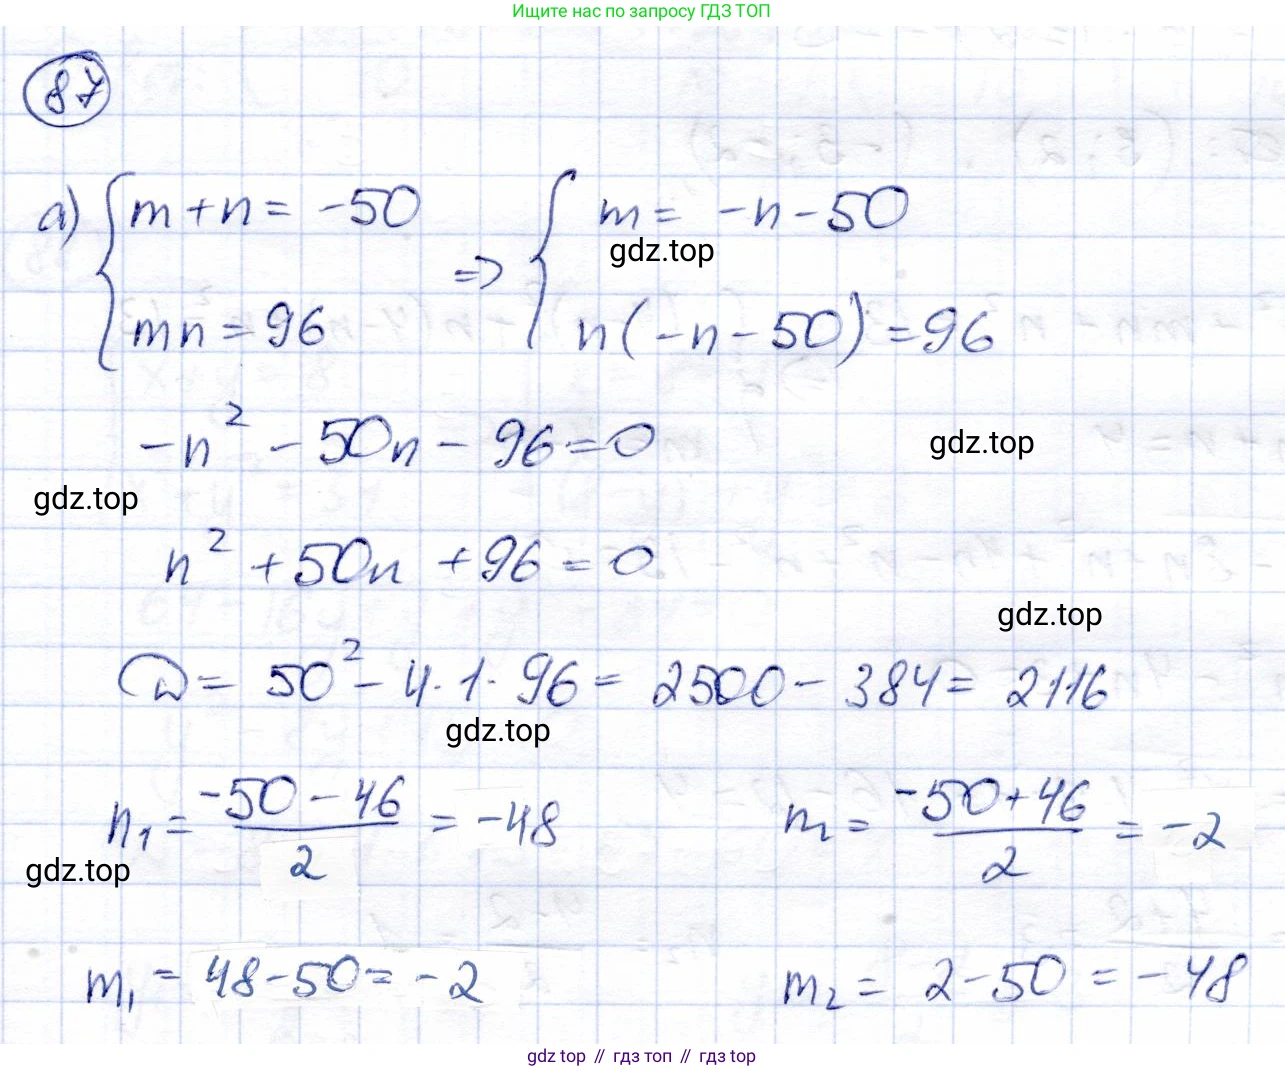 Ищите нас по запросу ГДЗ ТОП
87
а) { m + n = -50 => { m = -n - 50
gdz.top
mn = 96 n(-n - 50) = 96
-n² - 50n - 96 = 0
gdz.top
gdz.top
n² + 50n + 96 = 0
gdz.top
D = 50² - 4·1·96 = 2500 - 384 = 2116
gdz.top
n₁ = (-50 - 46)/2 = -48 n₂ = (-50 + 46)/2 = -2
gdz.top
m₁ = 48 - 50 = -2 m₂ = 2 - 50 = -48
gdz top // гдз топ // гдз top